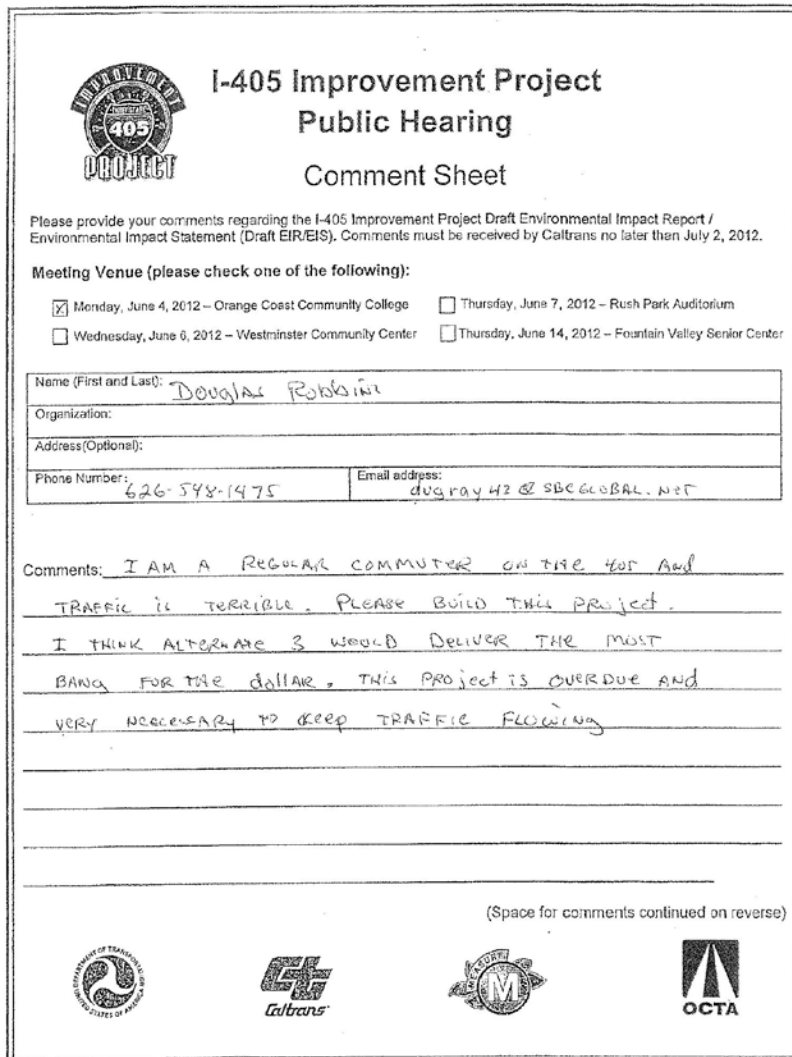 IMPROVEMENT
405
PROJECT
I-405 Improvement Project
Public Hearing
Comment Sheet
Please provide your comments regarding the I-405 Improvement Project Draft Environmental Impact Report /
Environmental Impact Statement (Draft EIR/EIS). Comments must be received by Caltrans no later than July 2, 2012.
Meeting Venue (please check one of the following):
Monday, June 4, 2012 – Orange Coast Community College Thursday, June 7, 2012 – Rush Park Auditorium
Wednesday, June 6, 2012 – Westminster Community Center Thursday, June 14, 2012 – Fountain Valley Senior Center
Name (First and Last): Douglas Robbins
Organization:
Address(Optional):
Phone Number: 626-548-1475 Email address: dugray42@SBCGLOBAL.NET
Comments: I AM A REGULAR COMMUTER ON THE 405 And
TRAFFIC is TERRIBLE. PLEASE BUILD THIS PROject.
I THINK ALTERNATE 3 WOULD DELIVER THE MOST
BANG FOR THE dollAR. THIS PROject is OVERDUE AND
VERY NECCESSARY TO Keep TRAFFIC FLOWING
(Space for comments continued on reverse)
DEPARTMENT OF TRANSPORTATION
UNITED STATES OF AMERICA
Caltrans
MEASURE
M
OCTA